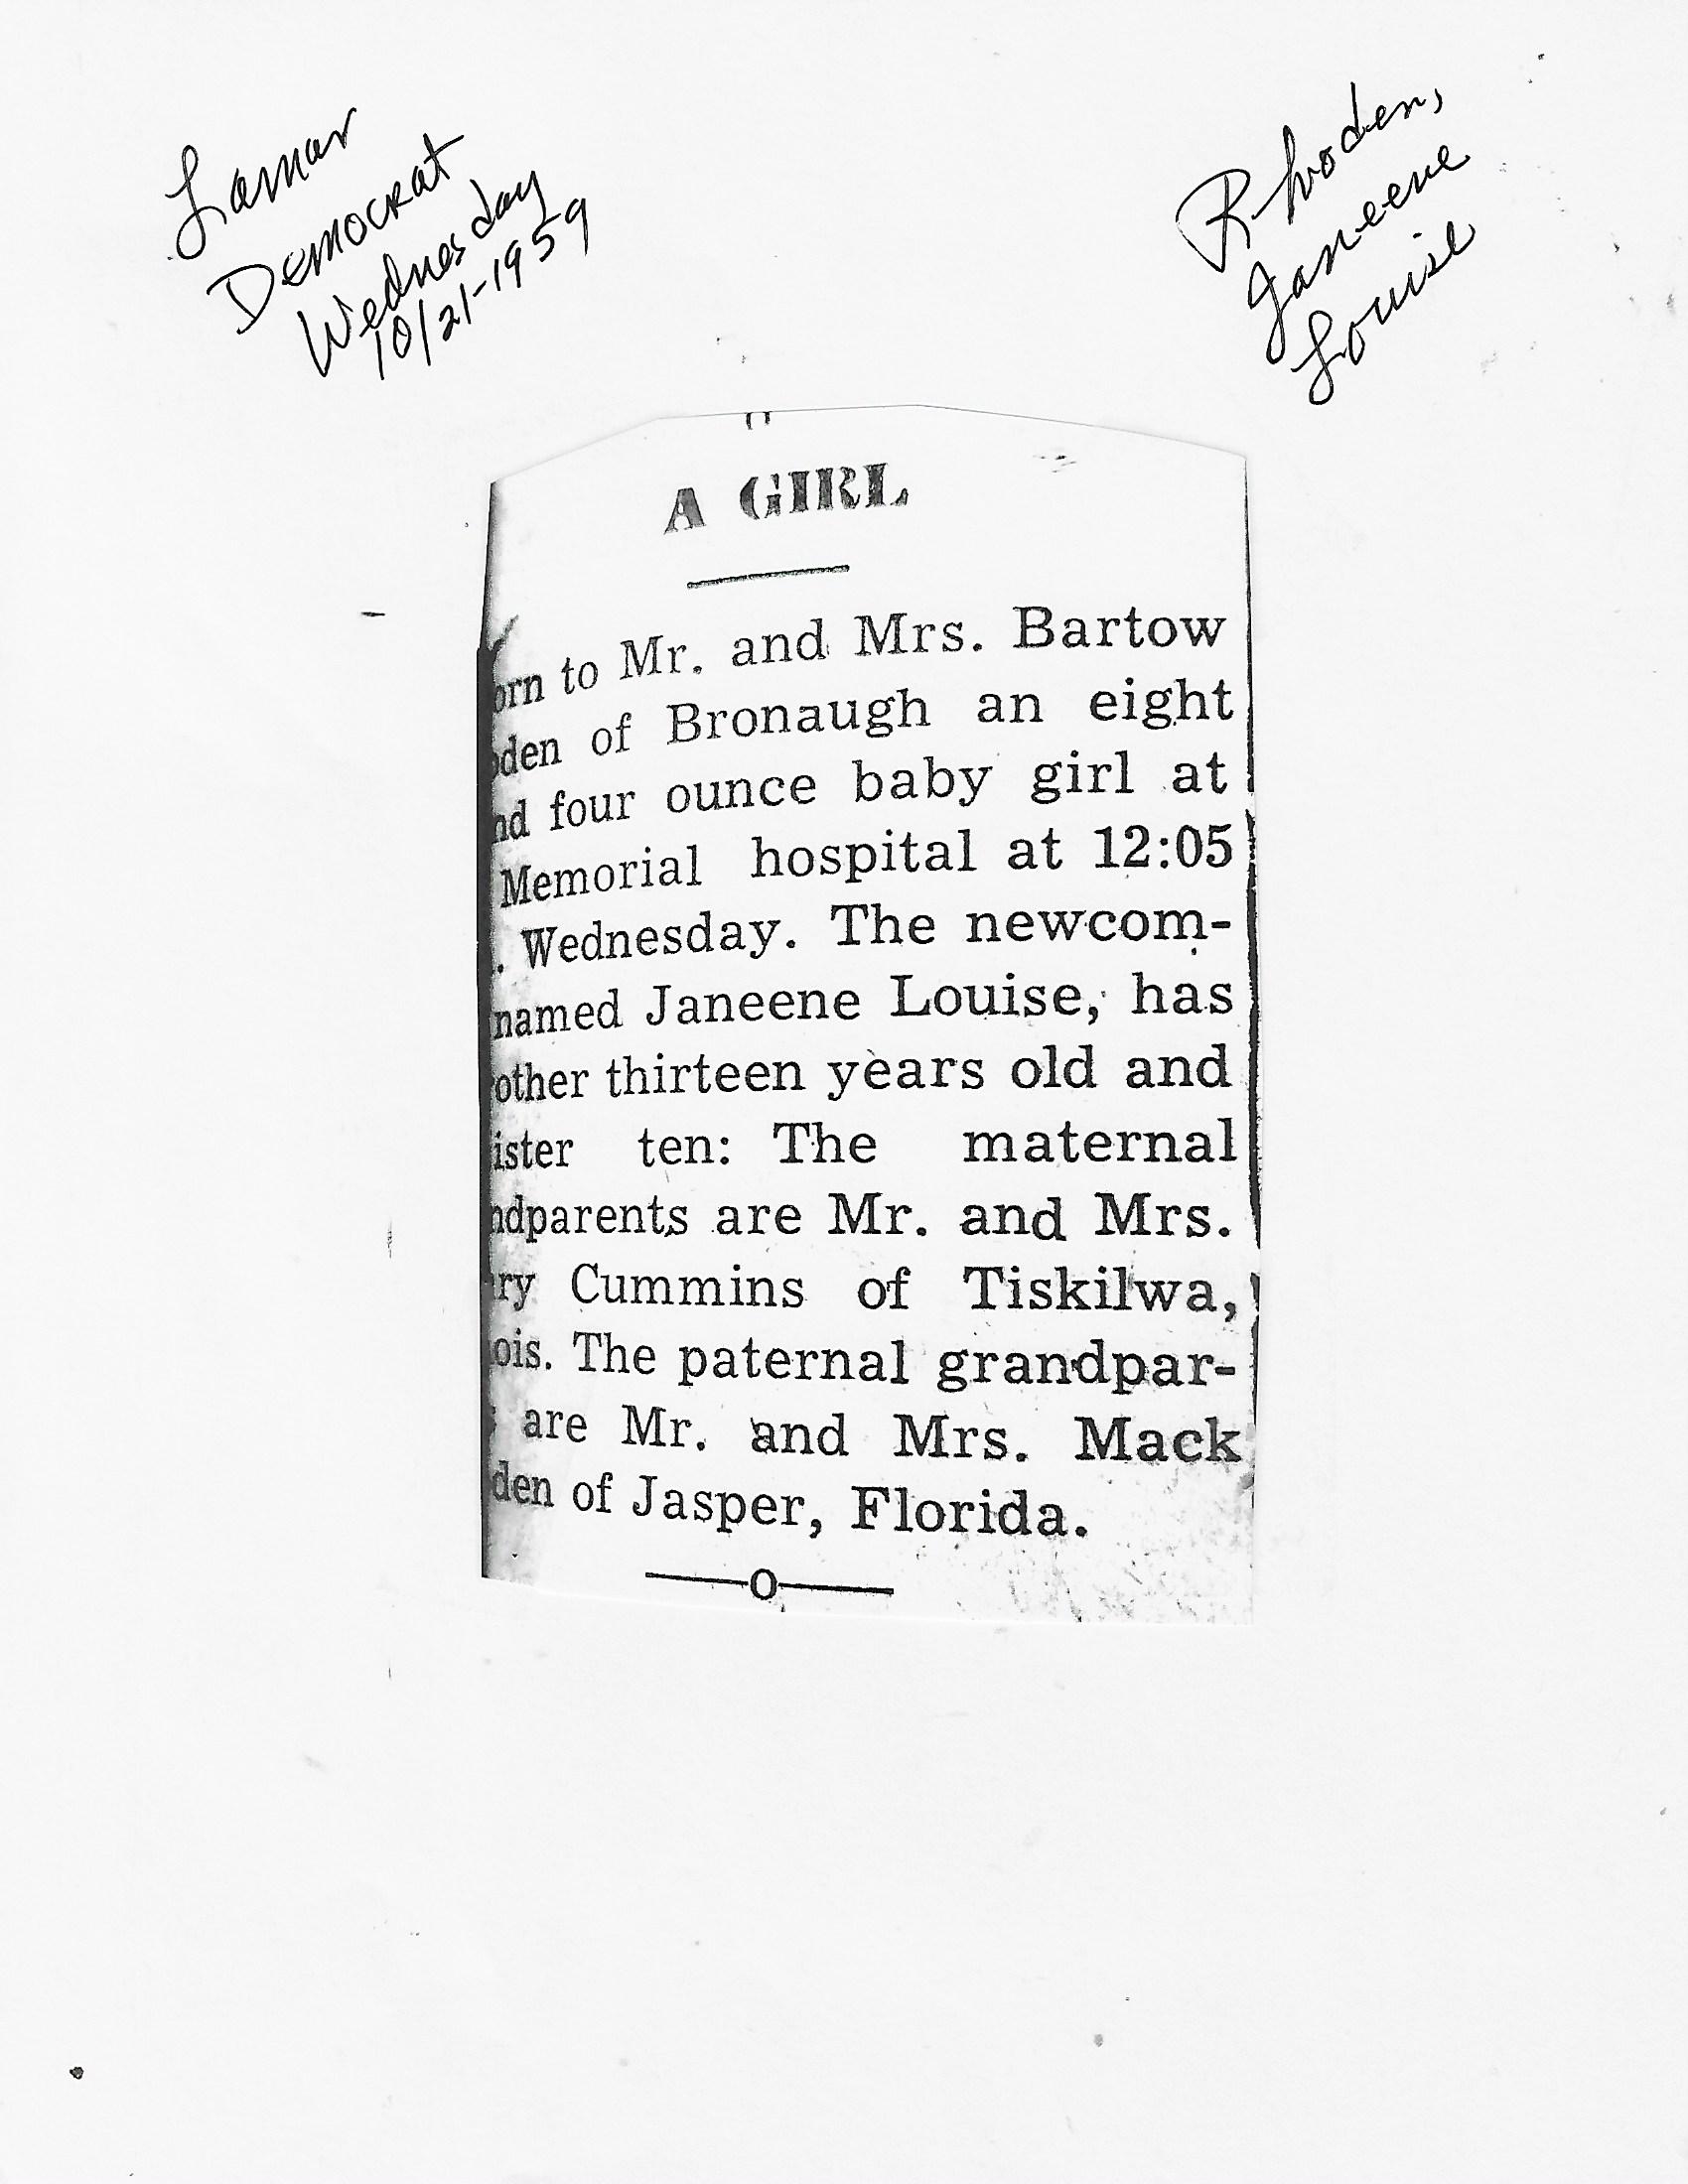 Lamar
Democrat
Wednesday
10/21-1959
Rhoden,
Janeene
Louise
A GIRL
orn to Mr. and Mrs. Bartow
oden of Bronaugh an eight
nd four ounce baby girl at
Memorial hospital at 12:05
. Wednesday. The newcom-
named Janeene Louise, has
other thirteen years old and
ister ten: The maternal
ndparents are Mr. and Mrs.
ry Cummins of Tiskilwa,
ois. The paternal grandpar-
are Mr. and Mrs. Mack
den of Jasper, Florida.